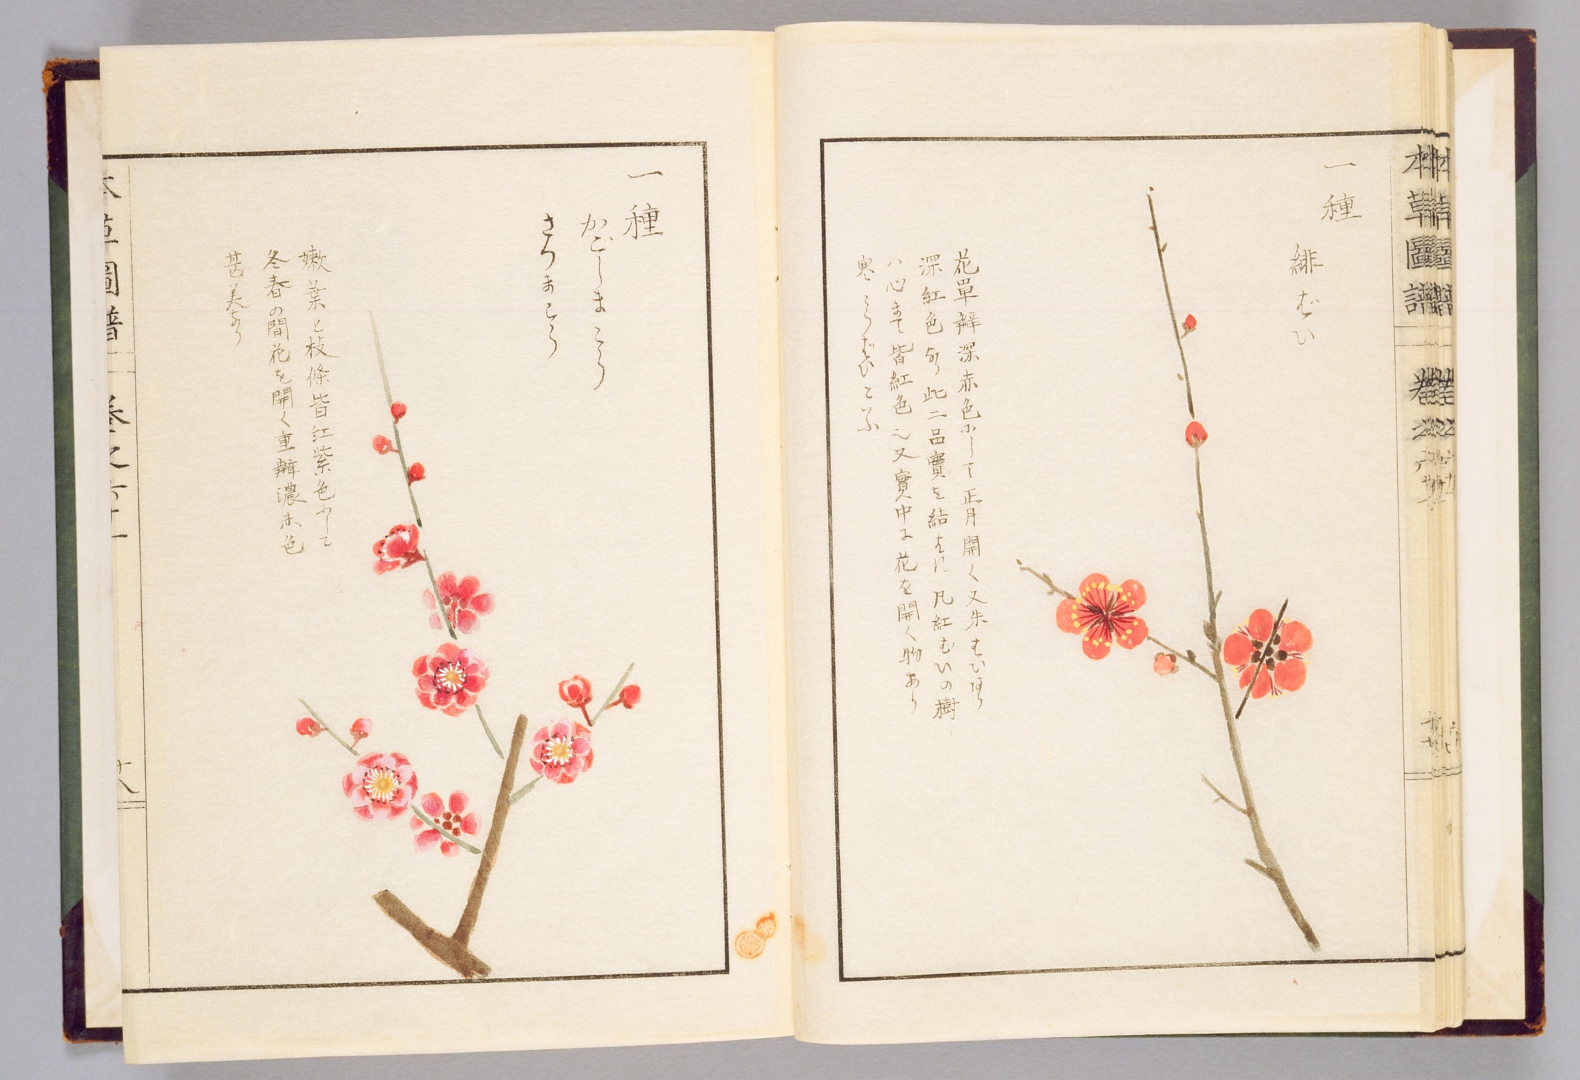 本草圖譜 卷之六十一
一種
緋むひ
花單瓣深赤色にして正月開く又朱むひあり
深紅色あり此二品實を結ばに凡紅むひの樹
ハ心まて皆紅色也又實中に花を開く物あり
寒こうむひと云ふ
一種
かごしまこうり
さつまこうり
嫩葉と枝條皆紅紫色にして
冬春の間花を開く重瓣濃赤色
甚美なり
本草圖譜 卷之六十一
十八